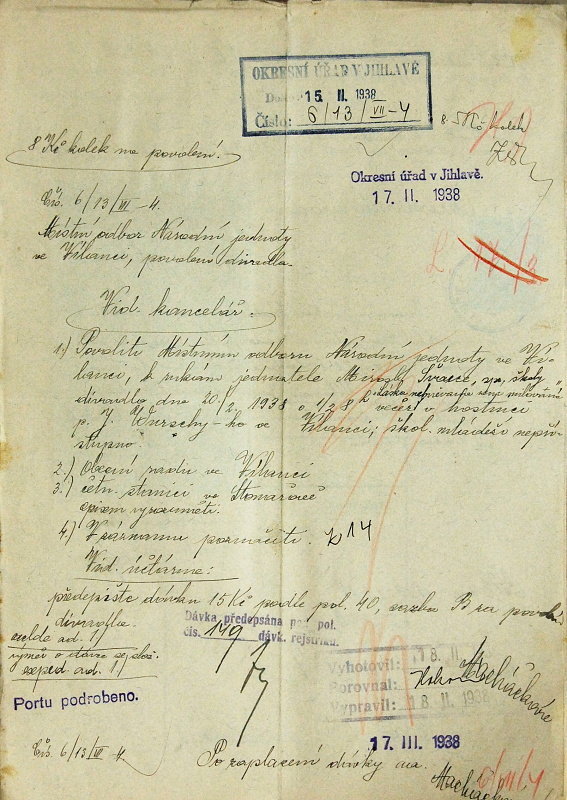 OKRESNÍ ÚŘAD V JIHLAVĚ
15. II. 1938
Číslo: 6/13/VII-4
8 Kč kolek na povolení.
Okresní úřad v Jihlavě.
17. II. 1938
Čís. 6/13/VII-4.
Místní odbor Národní jednoty
ve Vílanci, povolení divadla.
Vid. kancelář.
1.) Povoliti Místnímu odboru Národní jednoty ve Ví-
lanci, k rukám jednatele Mirosl. Švarce,
divadlo dne 20/2. 1938 o 1/2 8 večer v hostinci
p. J. ve Vílanci; škol. mládeži nepří-
stupno.
2.) Obecní radu ve Vílanci
3.) četn. stanici ve Stonařově
opisem vyrozuměti.
4.) V záznamu poznačiti. 14
Vid. účtárna:
předepište dávku 15 Kč podle pol. 40, sazba B za povolení
divadla.
Dávka předepsána pod pol.
čís. 149 dávk. rejstříku.
ad. 1/
exped. ad. 1/
Portu podrobeno.
Vyhotovil: 18. II.
Porovnal:
Vypravil: 18. II. 1938
Macháčková
17. III. 1938
Čís. 6/13/VII-4
Po zaplacení dávky